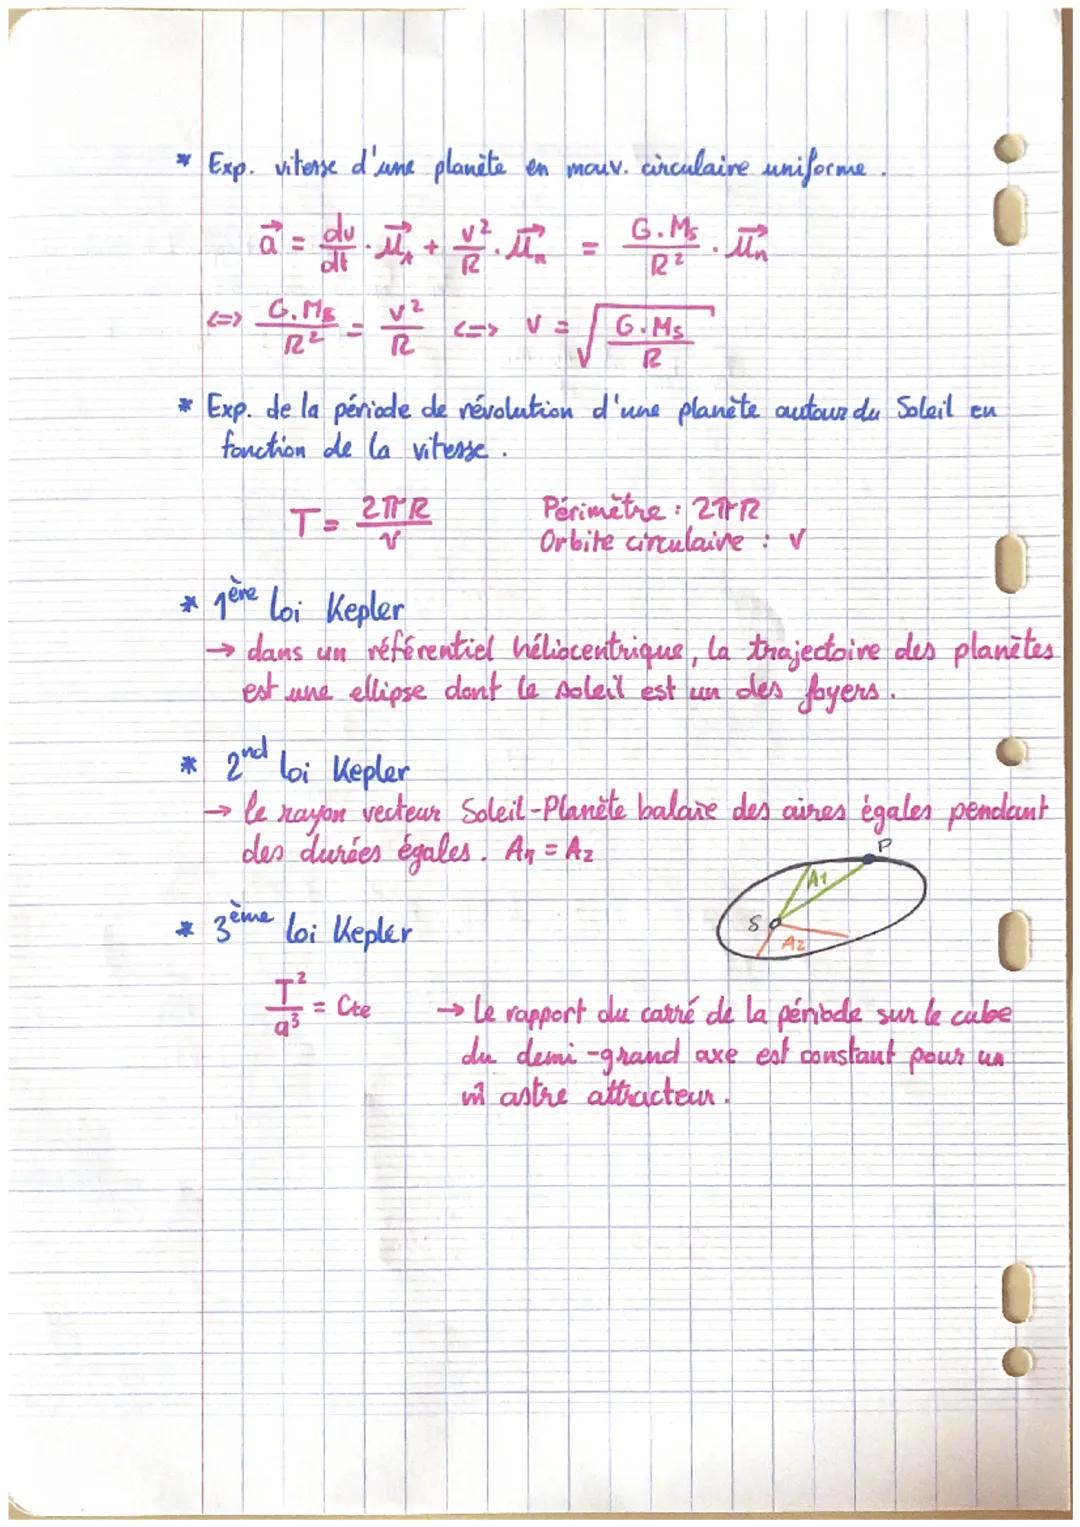 * Exp. vitesse d'une planète en mouv. circulaire uniforme.
a⃗ = dv/dt . u⃗t + v²/R . u⃗n = G.Ms/R² . u⃗n
<=> G.Ms/R² = v²/R <=> v = √(G.Ms/R)
* Exp. de la période de révolution d'une planète autour du Soleil en
fonction de la vitesse.
T = 2πR/v
Périmètre : 2πR
Orbite circulaire : v
* 1ère loi Kepler
→ dans un référentiel héliocentrique, la trajectoire des planètes
est une ellipse dont le soleil est un des foyers.
* 2nd loi Kepler
→ le rayon vecteur Soleil-Planète balaie des aires égales pendant
des durées égales. A1 = A2
P
A1
S
A2
* 3ème loi Kepler
T²/a³ = Cte
→ Le rapport du carré de la période sur le cube
du demi-grand axe est constant pour un
m̂ astre attracteur.